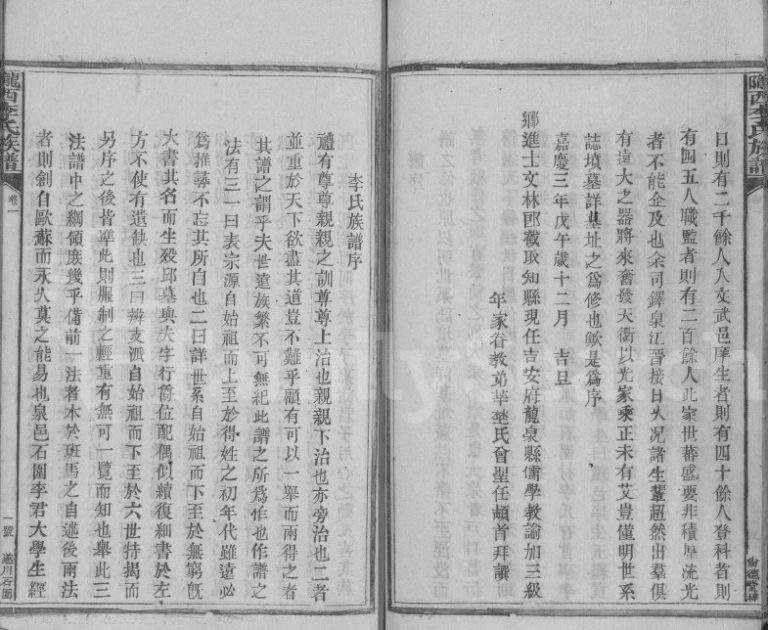 隴西李氏族譜
口則有二千餘人入文武邑庠生者則有四十餘人登科者則
有四五人職監者則有二百餘人此家世蕃盛要非積厚流光
者不能企及也余司鐸泉江晉接日久況諸生輩超然出羣俱
有遠大之器將來奮發天衢以光家乘正未有艾豈僅明世系
誌墳墓詳基址之爲修也歟是爲序
嘉慶三年戊午歲十二月 吉旦
鄉進士文林郎截取知縣現任吉安府龍泉縣儒學教諭加三級
年家眷教弟莘埜氏曾聖任頓首拜譔
李氏族譜序
禮有尊尊親親之訓尊尊上治也親親下治也亦旁治也二者
並重於天下欲盡其道豈不難乎顧有可以一舉而兩得之者
其譜之謂乎夫世遠族繁不可無紀此譜之所爲作也作譜之
法有三一曰表宗源自始祖而上至於得姓之初年代雖遠必
爲推尋不忘其所自也二曰詳世系自始祖而下至於無窮旣
大書其名而生殁邱墓與大字行爵位配偶似續復細書於左
方不使有遺缺也三曰辨支派自始祖而下至於六世特揭而
另序之後皆準此則服制之輕重有無可一覽而知也舉此三
法譜中之綱領庶幾乎備前一法者本於班馬之自述後兩法
者則創自歐蘇而永久莫之能易也泉邑石圍李君大學生經
隴西李氏族譜
卷一
一號
遂川石圍